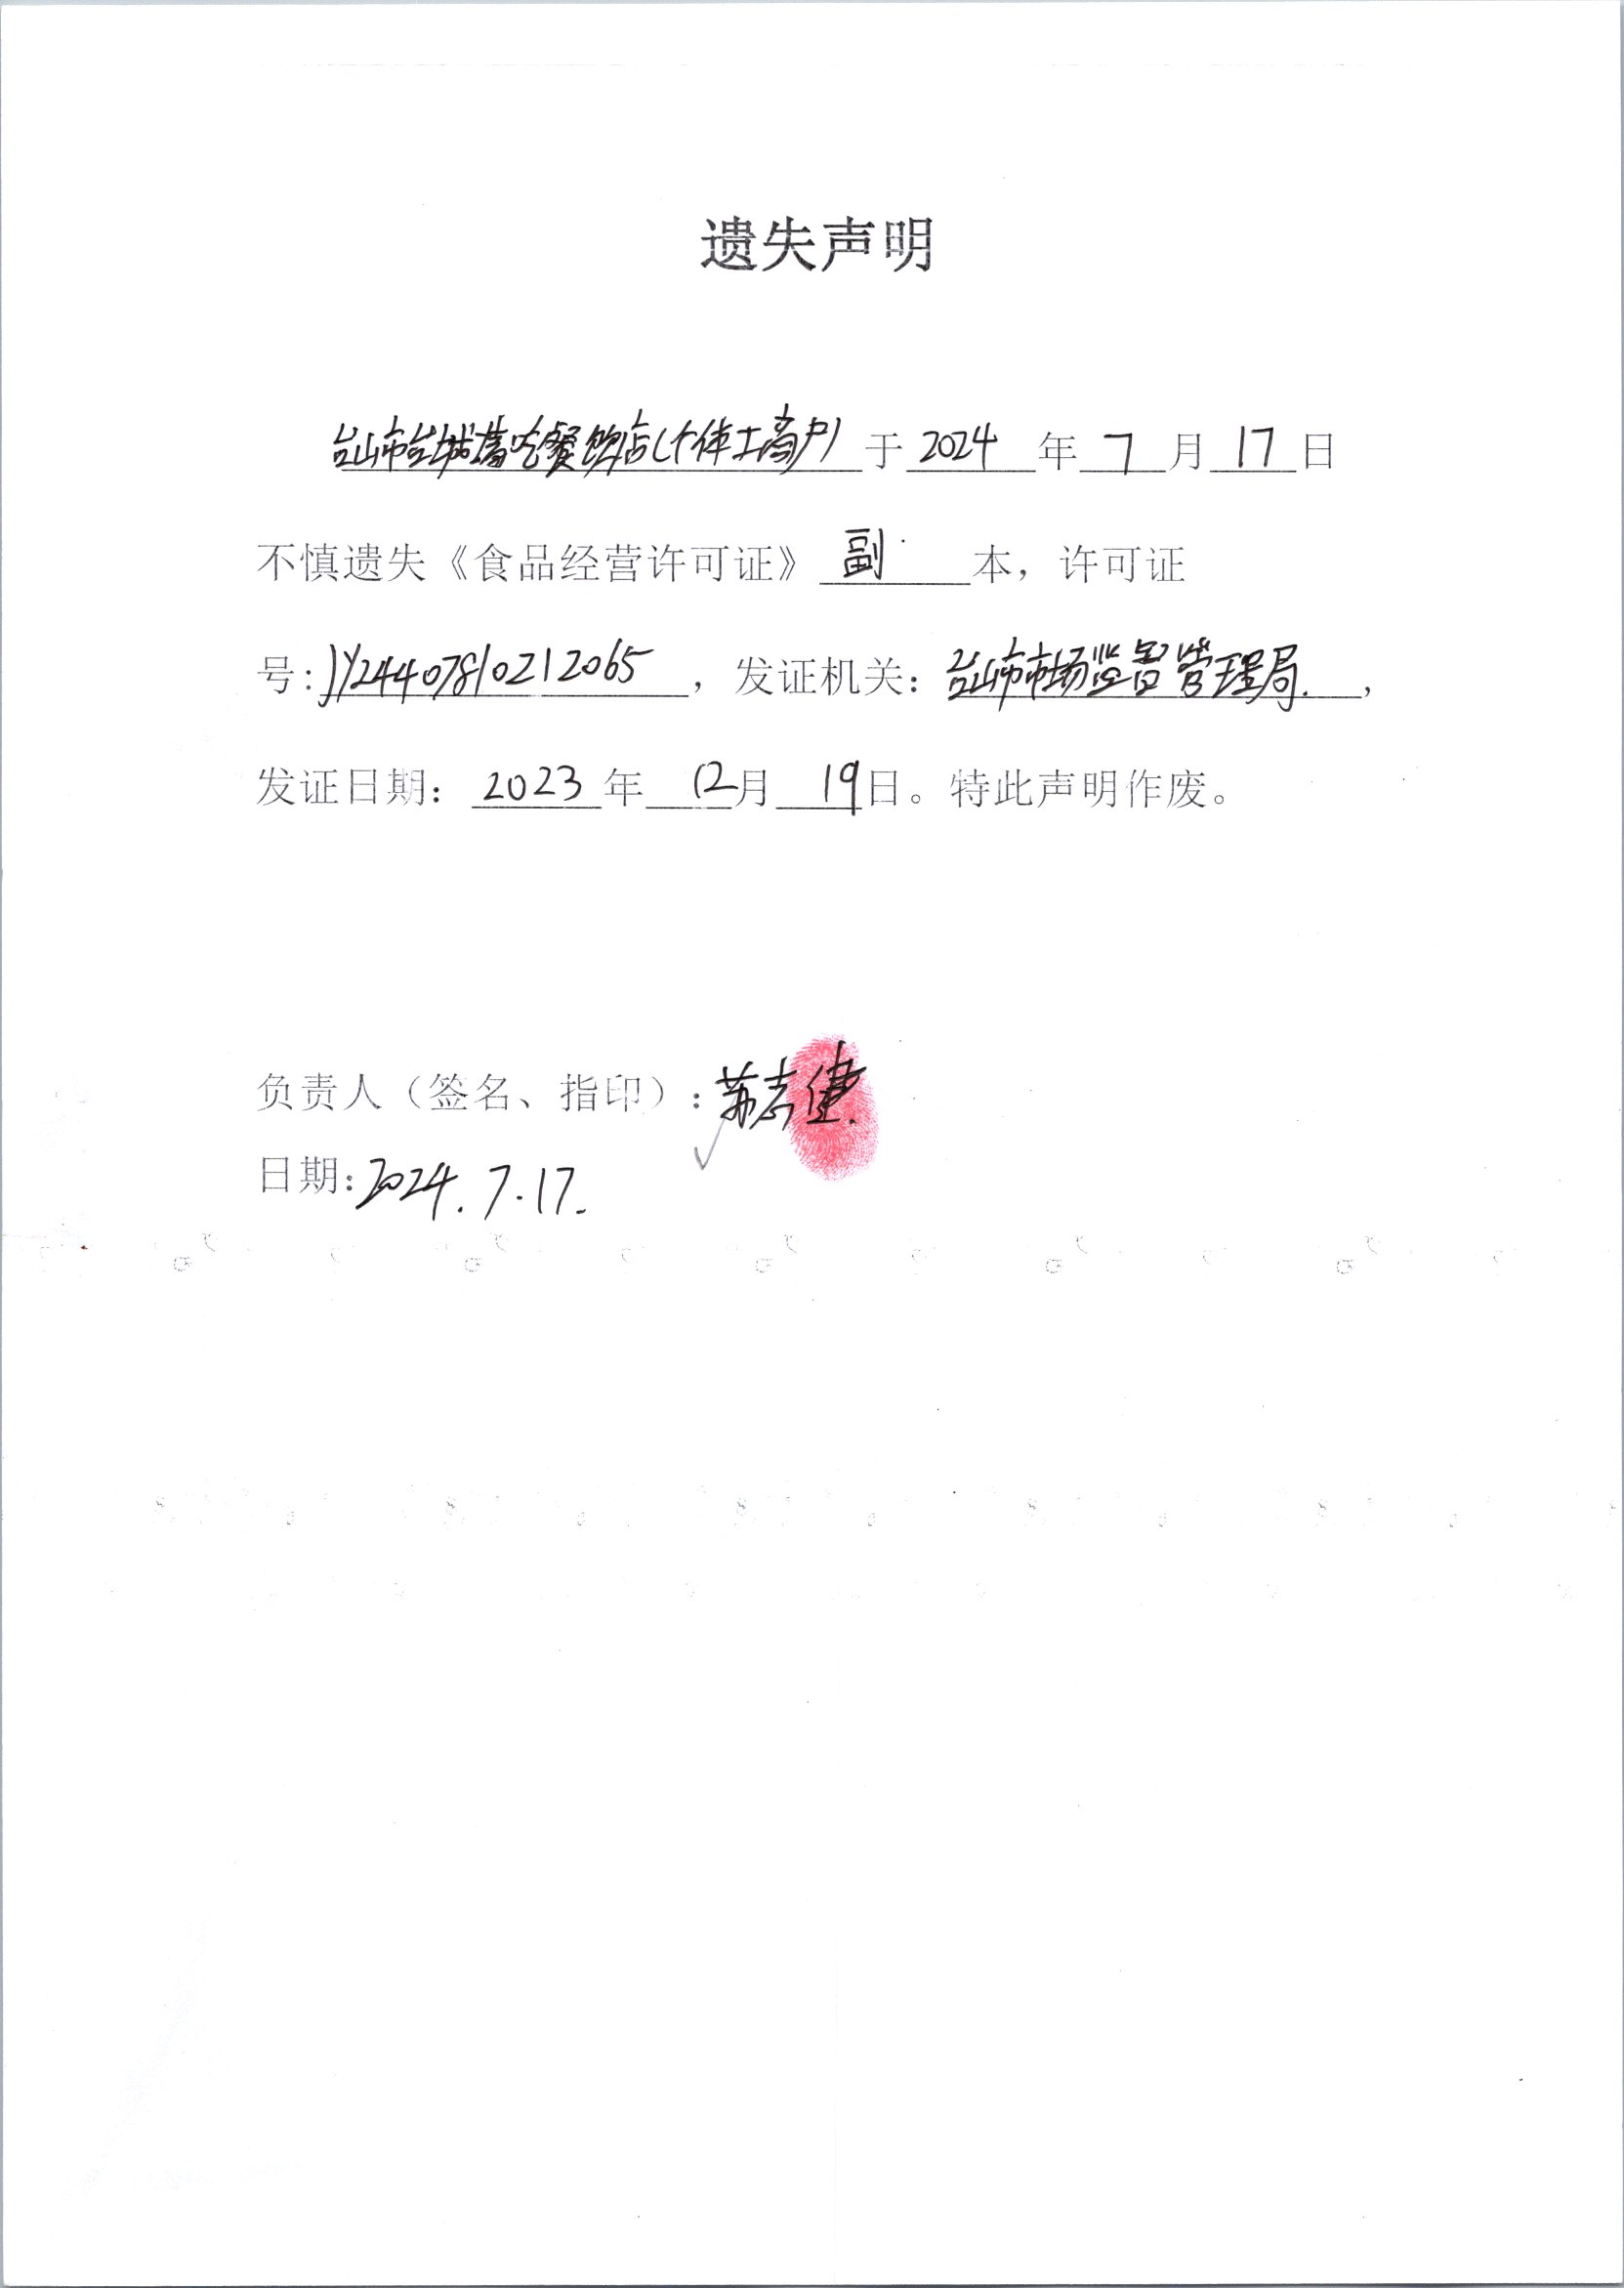 遗失声明
台山市台城喜吃餐饮店(个体工商户)于2024年7月17日
不慎遗失《食品经营许可证》副本，许可证
号:JY24407810212065，发证机关：台山市市场监督管理局.，
发证日期：2023年12月19日。特此声明作废。
负责人（签名、指印）:苏志健.
日期:2024.7.17.